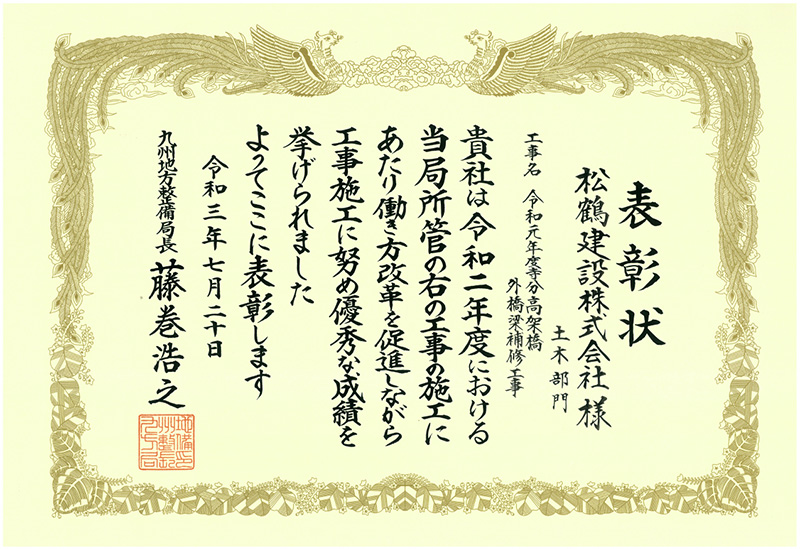 表彰状
松鶴建設株式会社 様
土木部門
工事名 令和元年度寺分高架橋
外橋梁補修工事
貴社は令和二年度における
当局所管の右の工事の施工に
あたり働き方改革を促進しながら
工事施工に努め優秀な成績を
挙げられました
よってここに表彰します
令和三年七月二十日
九州地方整備局長 藤巻浩之